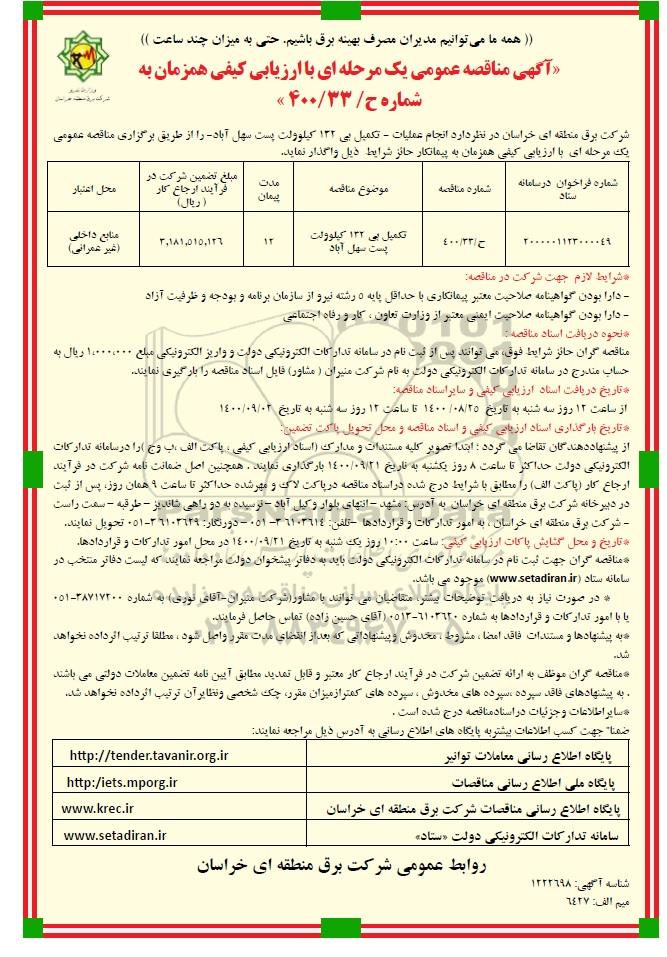 (( همه ما می‌توانیم مدیران مصرف بهینه برق باشیم. حتی به میزان چند ساعت ))
«آگهی مناقصه عمومی یک مرحله ای با ارزیابی کیفی همزمان به
شماره ح/ ۴۰۰/۳۳ »
وزارت نیرو
شرکت برق منطقه ای خراسان
شرکت برق منطقه ای خراسان در نظردارد انجام عملیات - تکمیل بی ۱۳۲ کیلوولت پست سهل آباد- را از طریق برگزاری مناقصه عمومی
یک مرحله ای با ارزیابی کیفی همزمان به پیمانکار حائز شرایط ذیل واگذار نماید.
شماره فراخوان درسامانه ستاد | شماره مناقصه | موضوع مناقصه | مدت پیمان | مبلغ تضمین شرکت در فرآیند ارجاع کار ( ریال) | محل اعتبار
۲۰۰۰۰۰۱۱۲۳۰۰۰۰۴۹ | ح/۴۰۰/۳۳ | تکمیل بی ۱۳۲ کیلوولت پست سهل آباد | ۱۲ | ۳,۱۸۱,۵۱۵,۱۲۶ | منابع داخلی (غیر عمرانی)
*شرایط لازم جهت شرکت در مناقصه:
- دارا بودن گواهینامه صلاحیت معتبر پیمانکاری با حداقل پایه ۵ رشته نیرو از سازمان برنامه و بودجه و ظرفیت آزاد
- دارا بودن گواهینامه صلاحیت ایمنی معتبر از وزارت تعاون ، کار و رفاه اجتماعی
*نحوه دریافت اسناد مناقصه :
مناقصه گران حائز شرایط فوق، می توانند پس از ثبت نام در سامانه تدارکات الکترونیکی دولت و واریز الکترونیکی مبلغ ۱,۰۰۰,۰۰۰ ریال به
حساب مندرج در سامانه تدارکات الکترونیکی دولت به نام شرکت منیران ( مشاور) فایل اسناد مناقصه را بارگیری نمایند.
*تاریخ دریافت اسناد ارزیابی کیفی و سایراسناد مناقصه:
از ساعت ۱۲ روز سه شنبه به تاریخ ۱۴۰۰ /۰۸/۲۵ تا ساعت ۱۲ روز سه شنبه به تاریخ ۱۴۰۰/۰۹/۰۲
*تاریخ بارگذاری اسناد ارزیابی کیفی و اسناد مناقصه و محل تحویل پاکت تضمین:
از پیشنهاددهندگان تقاضا می گردد : ابتدا تصویر کلیه مستندات و مدارک (اسناد ارزیابی کیفی ، پاکت الف ،ب وج )را درسامانه تدارکات
الکترونیکی دولت حداکثر تا ساعت ۸ روز یکشنبه به تاریخ ۱۴۰۰/۰۹/۲۱ بارگذاری نمایند . همچنین اصل ضمانت نامه شرکت در فرآیند
ارجاع کار (پاکت الف) را مطابق با شرایط درج شده دراسناد مناقصه درپاکت لاک و مهرشده حداکثر تا ساعت ۹ همان روز، پس از ثبت
در دبیرخانه شرکت برق منطقه ای خراسان به آدرس: مشهد – انتهای بلوار وکیل آباد – نرسیده به دو راهی شاندیز – طرقبه – سمت راست
- شرکت برق منطقه ای خراسان ، به امور تدارکات و قراردادها -تلفن: ۳۶۱۰۳۶۱۴-۰۵۱ - دورنگار: ۳۶۱۰۳۶۲۹-۰۵۱ تحویل نمایند.
*تاریخ و محل گشایش پاکات ارزیابی کیفی: ساعت ۱۰:۰۰ روز یک شنبه به تاریخ ۱۴۰۰/۰۹/۲۱ در محل امور تدارکات و قراردادها.
*مناقصه گران جهت ثبت نام در سامانه تدارکات الکترونیکی دولت باید به دفاتر پیشخوان دولت مراجعه نمایند که لیست دفاتر منتخب در
سامانه ستاد (www.setadiran.ir) موجود می باشد.
* در صورت نیاز به دریافت توضیحات بیشتر، متقاضیان می توانند با مشاور(شرکت منیران-آقای نوری) به شماره ۳۸۷۱۷۲۰۰-۰۵۱
یا با امور تدارکات و قراردادها به شماره ۶۱۰۳۶۲۰-۰۵۱۳ (آقای حسین زاده) تماس حاصل فرمایند.
*به پیشنهادها و مستندات فاقد امضا ، مشروط ، مخدوش وپیشنهاداتی که بعداز انقضای مدت مقرر واصل شود ، مطلقا ترتیب اثرداده نخواهد
شد.
*مناقصه گران موظف به ارائه تضمین شرکت در فرآیند ارجاع کار معتبر و قابل تمدید مطابق آیین نامه تضمین معاملات دولتی می باشند
. به پیشنهادهای فاقد سپرده ،سپرده های مخدوش ، سپرده های کمترازمیزان مقرر، چک شخصی ونظایرآن ترتیب اثرداده نخواهد شد.
*سایراطلاعات وجزئیات دراسنادمناقصه درج شده است .
ضمنا" جهت کسب اطلاعات بیشتربه پایگاه های اطلاع رسانی به آدرس ذیل مراجعه نمایند:
پایگاه اطلاع رسانی معاملات توانیر | http://tender.tavanir.org.ir
پایگاه ملی اطلاع رسانی مناقصات | http:/iets.mporg.ir
پایگاه اطلاع رسانی مناقصات شرکت برق منطقه ای خراسان | www.krec.ir
سامانه تدارکات الکترونیکی دولت «ستاد» | www.setadiran.ir
روابط عمومی شرکت برق منطقه ای خراسان
شناسه آگهی: ۱۲۲۲۶۹۸
میم الف: ۶۴۲۷